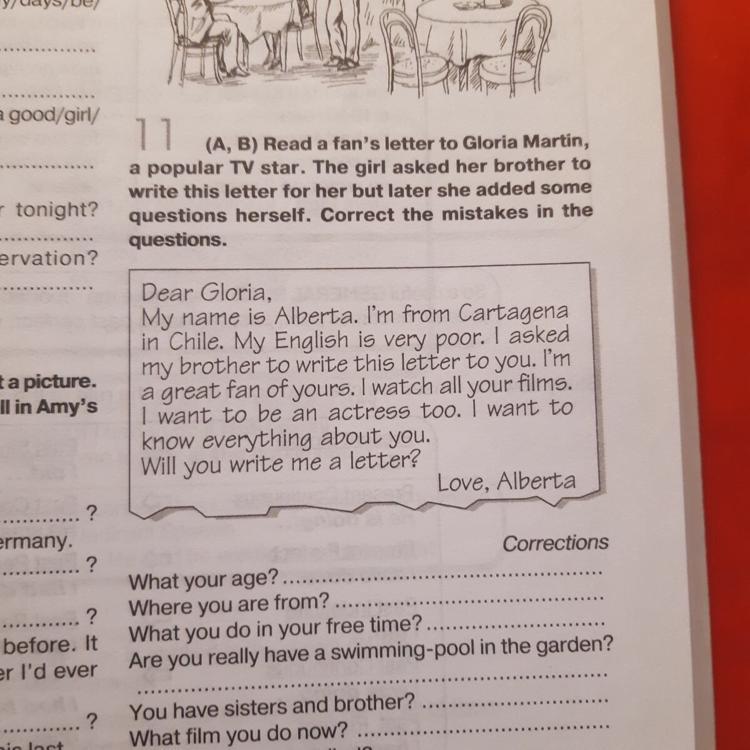 y/days/be/
a good/girl/
tonight?
ervation?
t a picture.
ll in Amy's
?
ermany.
?
?
before. It
er I'd ever
?
11 (A, B) Read a fan's letter to Gloria Martin,
a popular TV star. The girl asked her brother to
write this letter for her but later she added some
questions herself. Correct the mistakes in the
questions.
Dear Gloria,
My name is Alberta. I'm from Cartagena
in Chile. My English is very poor. I asked
my brother to write this letter to you. I'm
a great fan of yours. I watch all your films.
I want to be an actress too. I want to
know everything about you.
Will you write me a letter?
Love, Alberta
Corrections
What your age? ..........
Where you are from? ..........
What you do in your free time? ..........
Are you really have a swimming-pool in the garden?
..........
You have sisters and brother? ..........
What film you do now? ..........